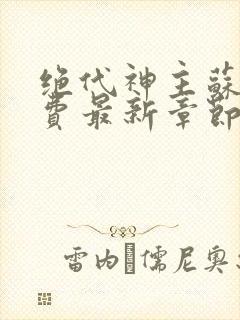 绝代神主蘇
费最新章節
雷内·儒尼奥